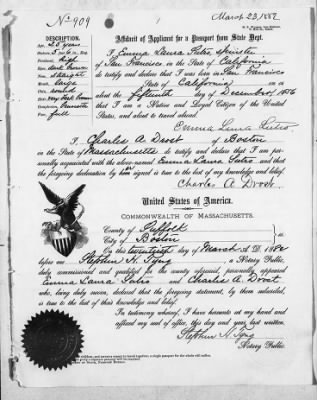 March 23, 1882
No 909
Affidavit of Applicant for a Passport from State Dept.
DESCRIPTION.
Age, 25 years
I Emma Laura Sutro Spinster
of San Francisco in the State of California
do testify and declare that I was born in San Francisco
State of California, on or
about the fifteenth day of December 1856
that I am a Native and Loyal Citizen of the United
States, and about to travel abroad.
high
dark brown
straight
large
round
very dark brown
brunette
full
Emma Laura Sutro
I, Charles A. Drost of Boston
in the State of Massachusetts do testify and declare that I am per-
sonally acquainted with the above-named Emma Laura Sutro and that
the foregoing declaration by her signed is true to the best of my knowledge and belief.
Charles A Drost
United States of America.
COMMONWEALTH OF MASSACHUSETTS.
County of Suffolk
City of Boston ss.
On this twentieth day of March A.D. 1882
before me Stephen H. Tyng, a Notary Public,
duly commissioned and qualified for the county aforesaid, personally appeared
Emma Laura Sutro and Charles A Drost
who, being duly sworn, declared that the foregoing statement, by them subscribed,
is true to the best of their knowledge and belief.
In testimony whereof, I have hereunto set my hand and
affixed my seal of office, this day and year last written.
Stephen H. Tyng
Notary Public.